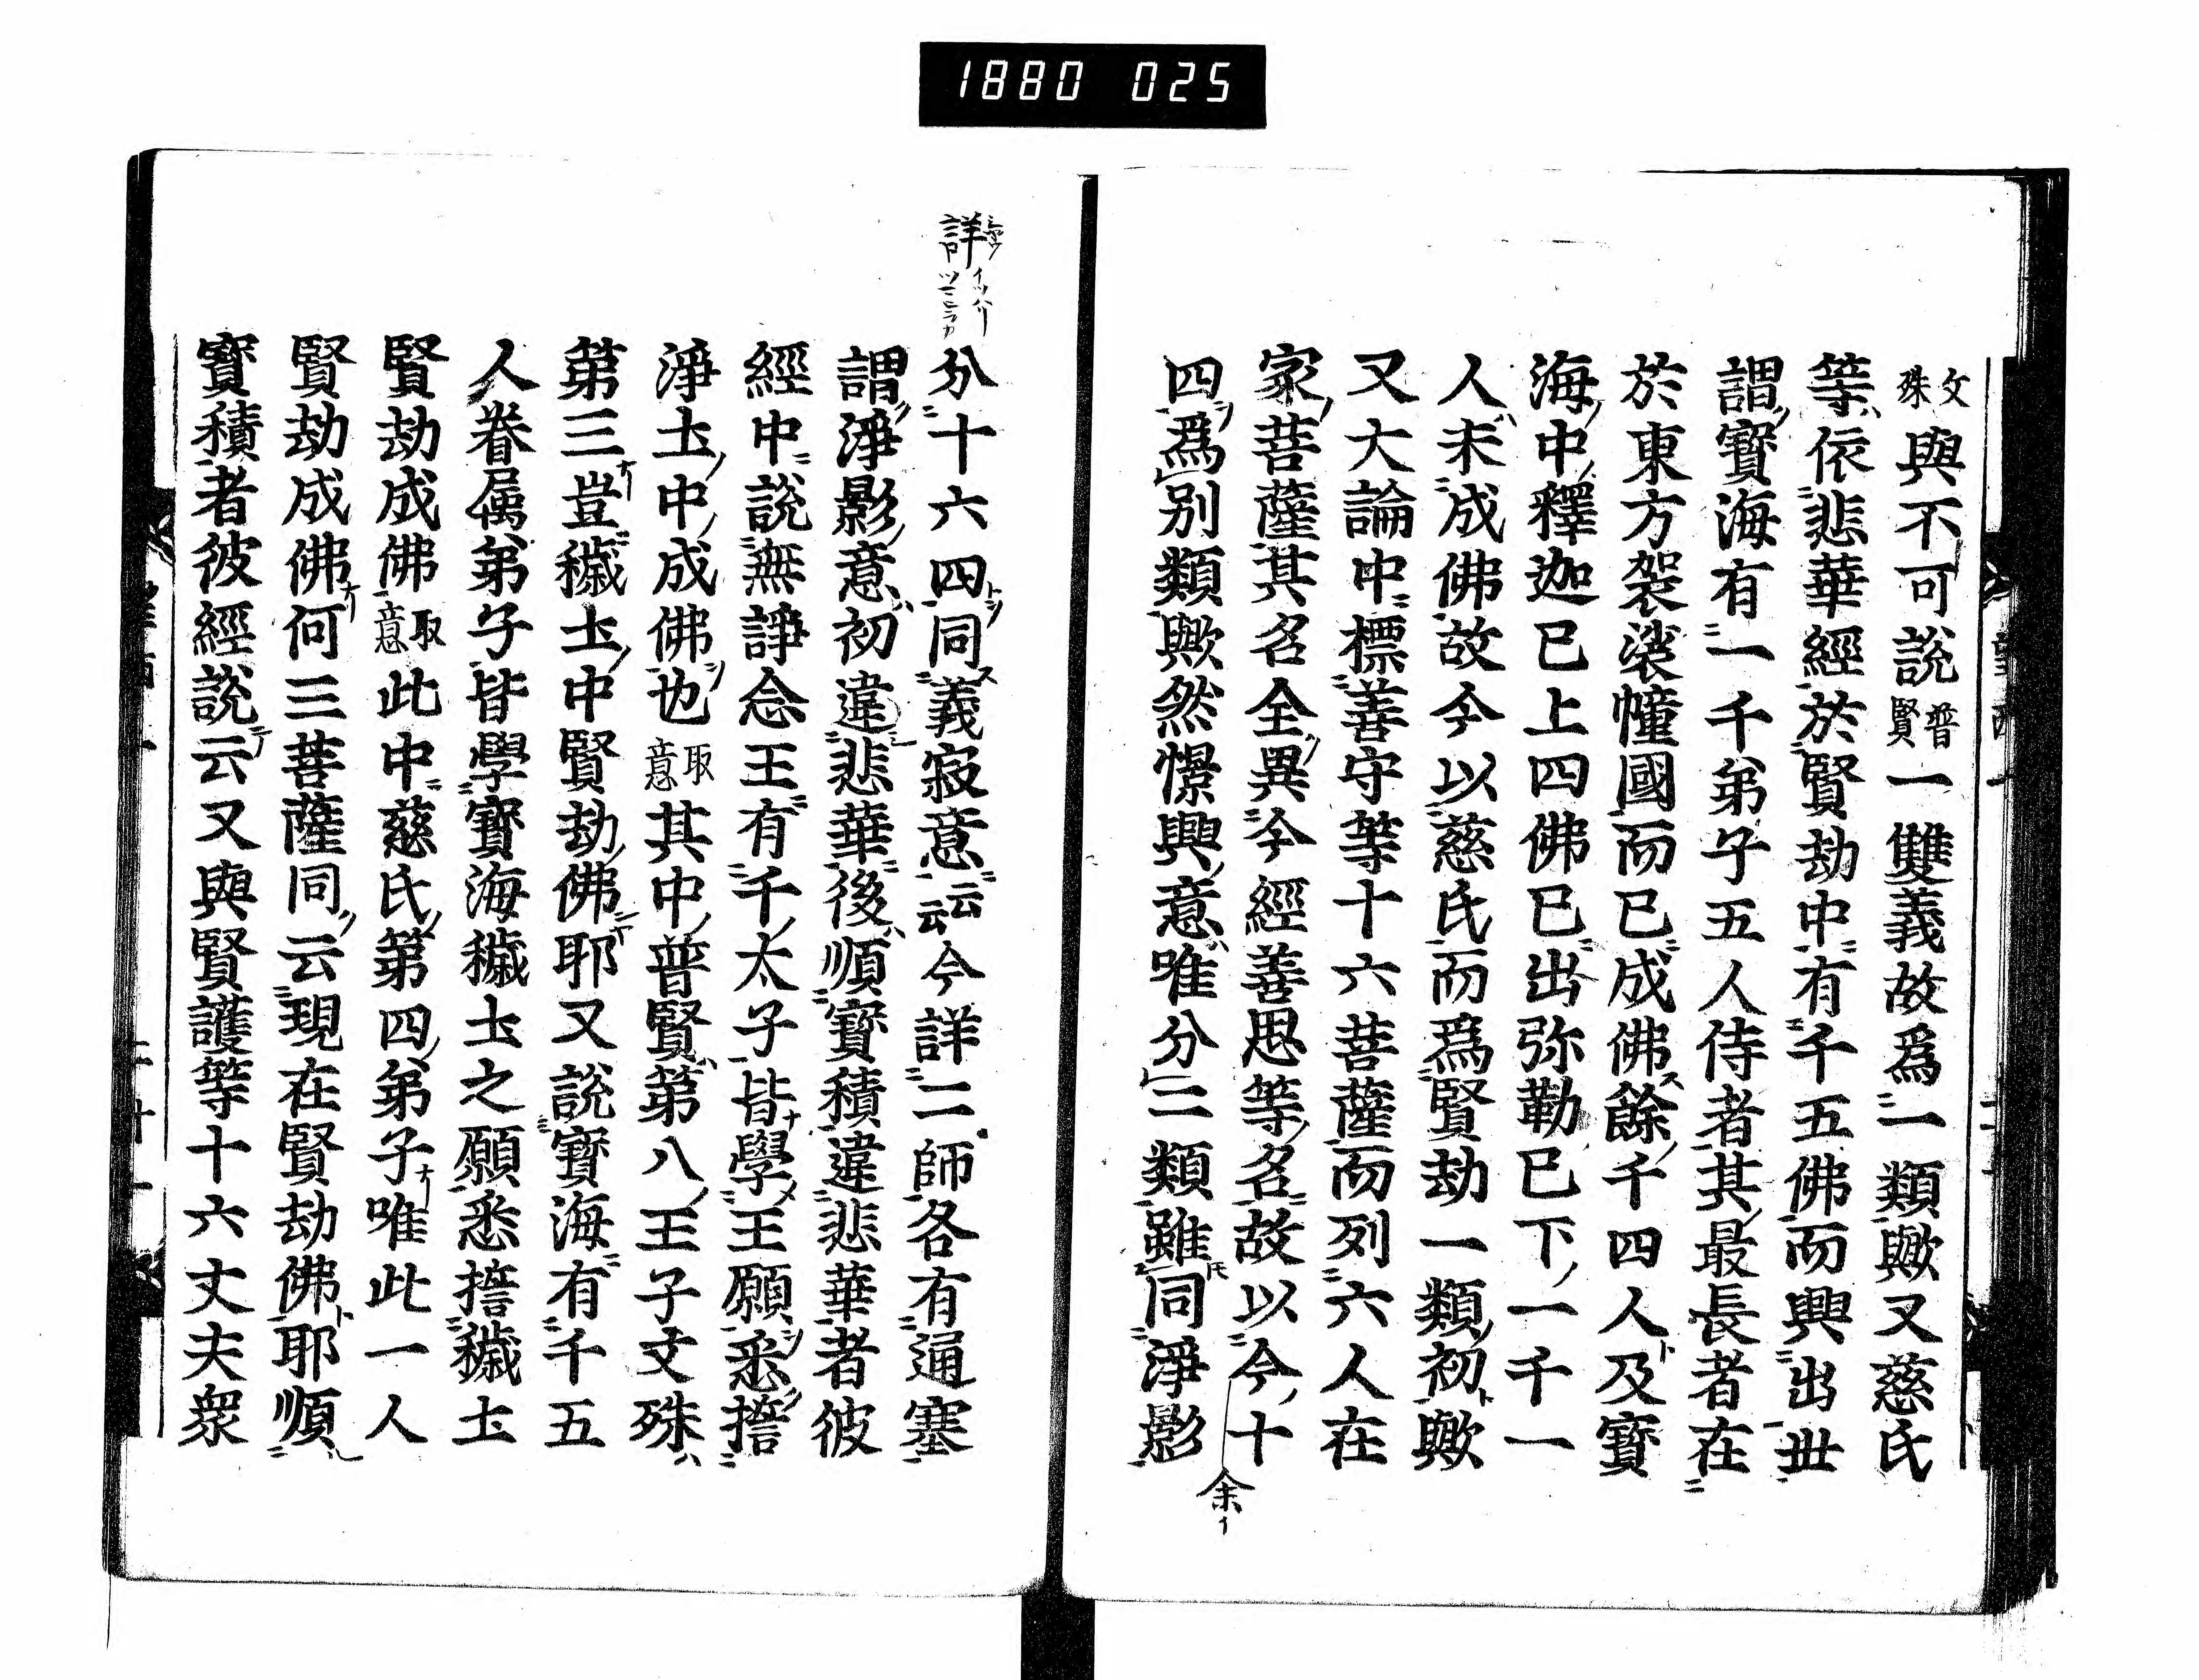 1880 025
文殊與不可說普賢一雙義故爲一類歟又慈氏
等依悲華經於賢劫中有千五佛而興出世
謂寶海有一千弟子五人侍者其最長者在
於東方袈裟幢國而已成佛餘千四人及寶
海中釋迦已上四佛已出弥勒已下一千一
人未成佛故今以慈氏而爲賢劫一類初歟
又大論中標善守等十六菩薩而列六人在
家菩薩其名全異今經善思等名故以今十
四爲別類歟然憬興意唯分二類雖同淨影
余イ
詳
分十六四同義寂意云云今詳二師各有通塞
謂淨影意初違悲華後順寶積違悲華者彼
經中說無諍念王有千太子皆學王願悉擔
淨土中成佛也取意其中普賢第八王子文殊
第三豈穢土中賢劫佛耶又說寶海有千五
人眷属弟子皆學寶海穢土之願悉擔穢土
賢劫成佛取意此中慈氏第四弟子唯此一人
賢劫成佛何三菩薩同云現在賢劫佛耶順
寶積者彼經說云又與賢護等十六丈夫衆